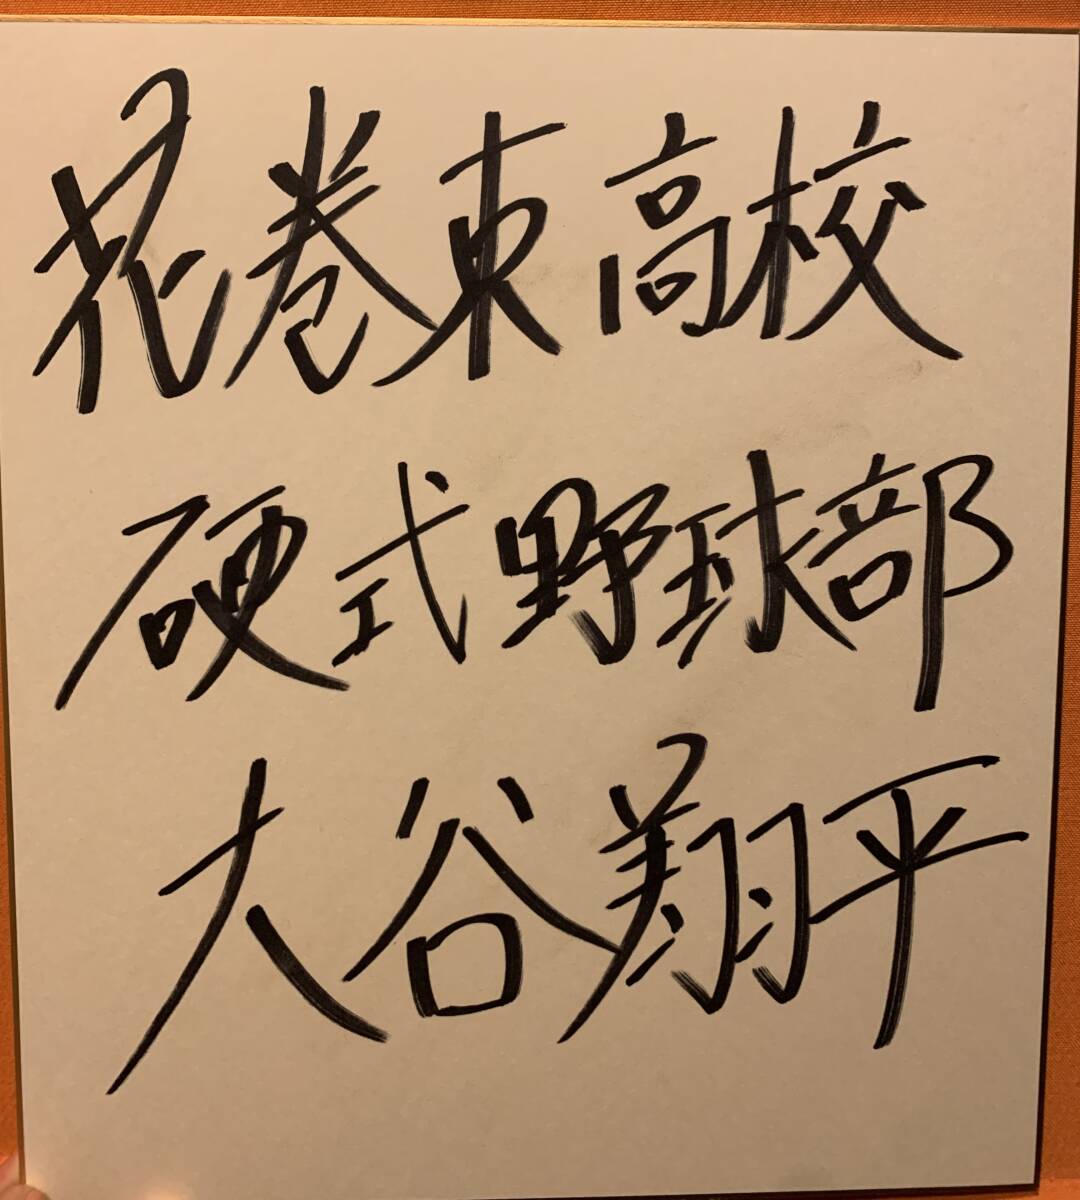 花巻東高校
硬式野球部
大谷翔平